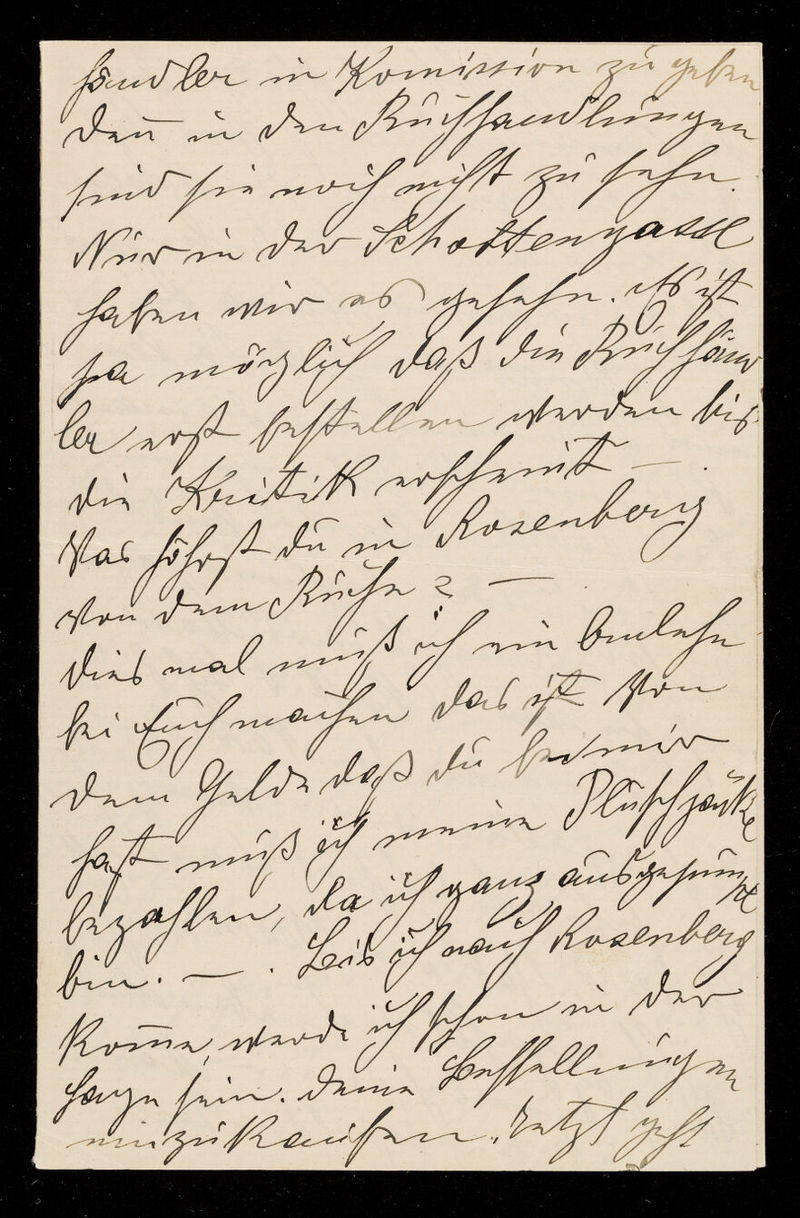 händler in Komission zu geben
den̄ in den Buchhandlungen
sind sie noch nicht zu sehn.
Nur in der Schottengasse
haben wir es gesehn. Es ist
ja möglich daß die Buchhänd
ler erst bestellen werden bis
die Kritik erscheint — .
Was hörst du in Rosenberg
von dem Buche? —
dies mal muß ich ein Anlehn
bei Euch machen das ist von
dem Gelde daß du bei mir
hast muß ich meine Plüschjacke
bezahlen, da ich ganz
bin. — . Bis ich nach Rosenberg
kom̄e, werde ich schon in der
Lage sein. deine Bestellungen
einzukaufen. Jetzt geht